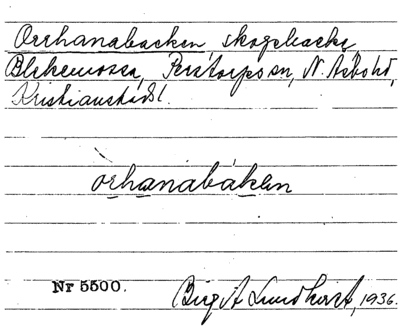 Orrhanabacken, skogsbacke,
Blekemossa, Perstorps sn, N. Åsbo hd,
Kristianstads l.
orhanabáken
Nr 5500.
Birgit Lundkvist, 1936.